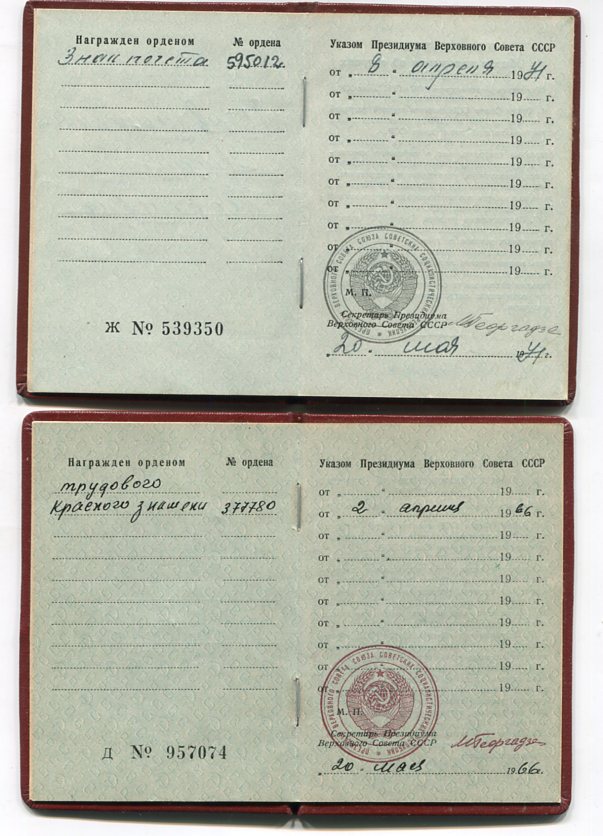 Награжден орденом № ордена
Знак почета 595012.
Указом Президиума Верховного Совета СССР
от „ 8 “ апреля 1971 г.
от „ “ 19 г.
от „ “ 19 г.
от „ “ 19 г.
от „ “ 19 г.
от „ “ 19 г.
от „ “ 19 г.
от „ “ 19 г.
от „ “ 19 г.
от „ “ 19 г.
М. П.
Секретарь Президиума
Верховного Совета СССР МГеоргадзе
20. мая 1971 г.
Ж № 539350
Награжден орденом № ордена
трудового
Красного знамени 377780
Указом Президиума Верховного Совета СССР
от „ “ 19 г.
от „ 2 “ апреля 1966 г.
от „ “ 19 г.
от „ “ 19 г.
от „ “ 19 г.
от „ “ 19 г.
от „ “ 19 г.
от „ “ 19 г.
от „ “ 19 г.
от „ “ 19 г.
М. П.
Секретарь Президиума
Верховного Совета СССР МГеоргадзе
20. мая 1966г.
Д № 957074